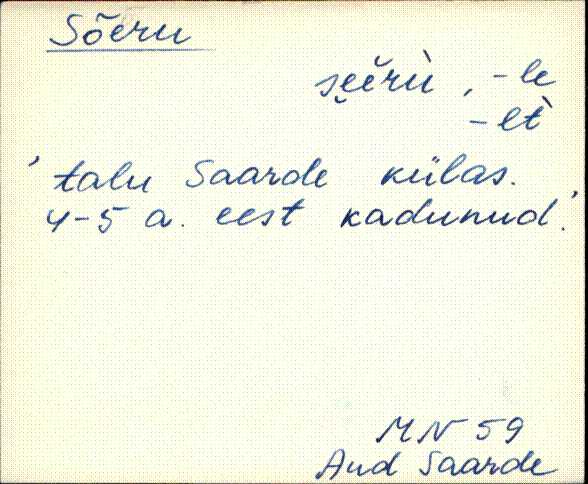 Sõeru
sẹẹ̆rù, -le
-lt̀
' talu Saarde külas.
4-5 a. eest kadunud.'
MN 59
Aud Saarde